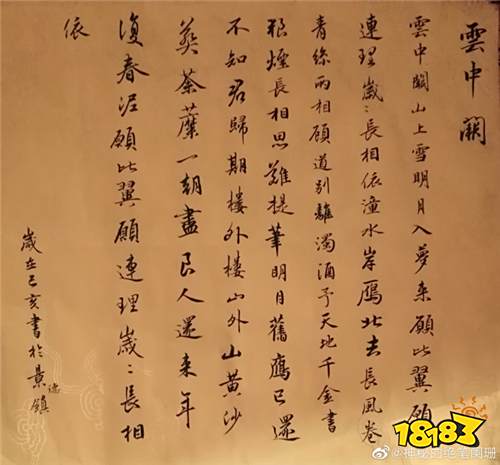 雲中闕
雲中闕山上雪明月入夢來願比翼願
連理歲々長相依潼水岸鴈北去長風卷
青絲兩相顧道別離濁酒予天地千金書
狼煙長相思難提筆明月舊鷹已還
不知君歸期樓外樓山外山黃沙
葬荼蘼一朝盡良人還來年
復春泥願比翼願連理歲々長相
依
歲在己亥書於景德鎮
18183
@神秘的绝笔阑珊